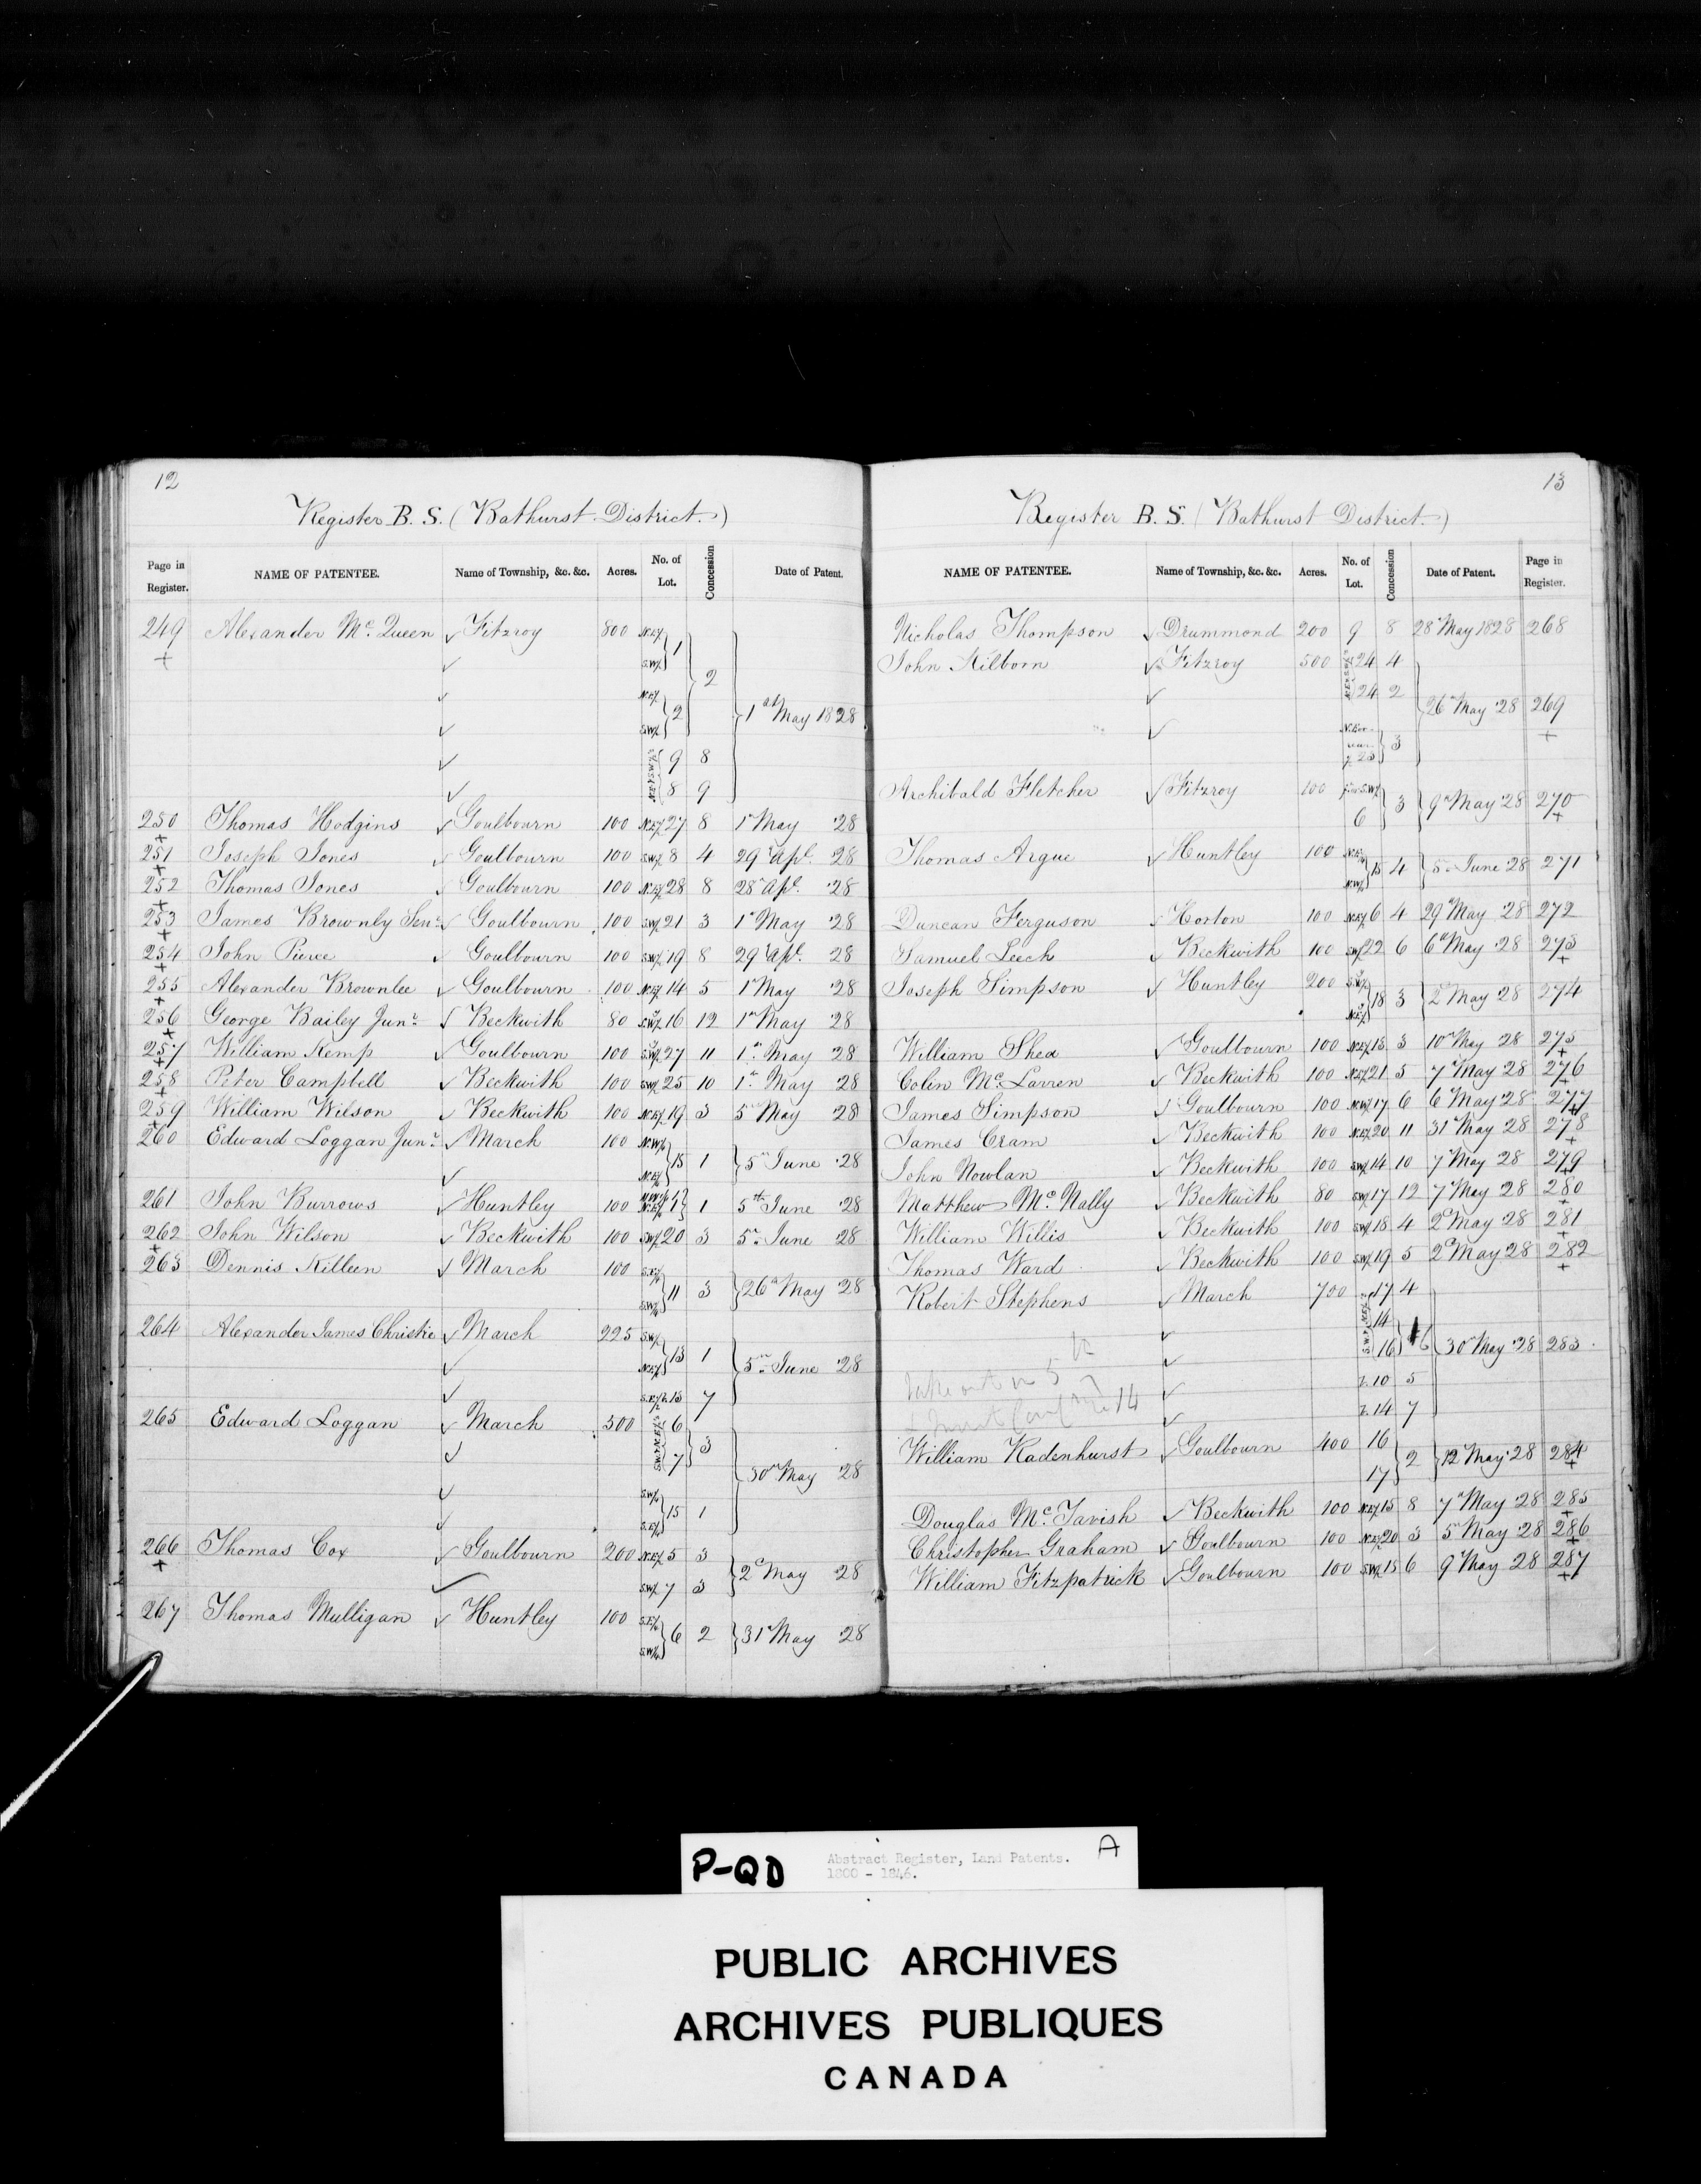 12
Register B. S. (Bathurst District.)
Page in Register. NAME OF PATENTEE. Name of Township, &c. &c. Acres. No. of Lot. Concession Date of Patent.
249 Alexander Mc. Queen ✓ Fitzroy 800 N.E.½
+ ✓ S.W.½ } 1
2
✓ N.E.½
✓ S.W.½ } 2 } 1st May 1828
✓ 9 8
✓ 8 9
250 Thomas Hodgins ✓ Goulbourn 100 N.E.½ 27 8 1st May '28
+
251 Joseph Jones ✓ Goulbourn 100 S.W.½ 8 4 29th Apl. 28
+
252 Thomas Jones ✓ Goulbourn 100 N.E.½ 28 8 28th Apl. '28
+
253 James Brownly Senr. ✓ Goulbourn 100 S.W.½ 21 3 1st May 28
+
254 John Pierce ✓ Goulbourn 100 S.W.½ 19 8 29th Apl. 28
+
255 Alexander Brownlee ✓ Goulbourn 100 N.E.½ 14 5 1st May '28
+
256 George Bailey Junr. ✓ Beckwith 80 S.W.½ 16 12 1st May '28
+
257 William Kemp ✓ Goulbourn 100 S.W.½ 27 11 1st May 28
+
258 Peter Campbell ✓ Beckwith 100 S.W.½ 25 10 1st May 28
+
259 William Wilson ✓ Beckwith 100 N.E.½ 19 3 5th May '28
+
260 Edward Loggan Junr. ✓ March 100 N.W.¼
✓ N.E.¼ } 15 1 } 5th June '28
261 John Burrows ✓ Huntley 100 N.E.¼ 1 5th June '28
262 John Wilson ✓ Beckwith 100 S.W.½ 20 3 5th June 28
+
263 Dennis Killeen ✓ March 100 S.E.¼
S.W.¼ } 11 3 } 26th May 28
264 Alexander James Christie ✓ March 225 S.W.½
✓ N.E.½ } 13 1 } 5th June '28
✓ 7
265 Edward Loggan ✓ March 300 6
✓ 7 } 3
} 30th May 28
✓ S.W.¼
✓ S.E.¼ } 15 1
266 Thomas Cox ✓ Goulbourn 200 N.E.½ 5 3
+ ✓ S.W.½ 7 3 } 2d May '28
267 Thomas Mulligan ✓ Huntley 100 S.E.¼
S.W.¼ } 6 2 } 31st May 28
13
Register B. S. (Bathurst District.)
NAME OF PATENTEE. Name of Township, &c. &c. Acres. No. of Lot. Concession Date of Patent. Page in Register.
Nicholas Thompson ✓ Drummond 200 9 8 28th May 1828 268
John Kilborn ✓ Fitzroy 500 24 4
✓ 24 2
} 26th May '28 269
✓ 3 +
Archibald Fletcher ✓ Fitzroy 100
6 } 3 } 9th May '28 270
+
Thomas Argue ✓ Huntley 100 N.E.¼
N.W.¼ } 15 4 } 5th June '28 271
Duncan Ferguson ✓ Horton 100 N.E.½ 6 4 29th May '28 272
Samuel Leech ✓ Beckwith 100 S.W.½ 22 6 6th May '28 273
+
Joseph Simpson ✓ Huntley 200 S.W.½
N.E.½ } 18 3 } 2d May 28 274
William Shea ✓ Goulbourn 100 N.E.½ 13 3 10th May 28 275
+
Colin Mc. Larren ✓ Beckwith 100 N.E.½ 21 5 7th May 28 276
+
James Simpson ✓ Goulbourn 100 N.W.½ 17 6 6th May '28 277
+
James Cram ✓ Beckwith 100 N.E.½ 20 11 31st May 28 278
+
John Nowlan ✓ Beckwith 100 S.W.½ 14 10 7th May 28 279
+
Matthew Mc. Nally ✓ Beckwith 80 S.W.½ 17 12 7th May '28 280
+
William Willis ✓ Beckwith 100 S.W.½ 18 4 2d May '28 281
+
Thomas Ward ✓ Beckwith 100 S.W.½ 19 5 2d May 28 282
+
Robert Stephens ✓ March 700 17 4
14
✓ 16 } 6 } 30th May '28 283
take out in 5 ✓ 10 5
14 ✓ 14 7
William Radenhurst ✓ Goulbourn 400 16
17 } 2 } 12th May '28 284
+
Douglas Mc. Tavish ✓ Beckwith 100 N.E.½ 15 8 7th May '28 285
+
Christopher Graham ✓ Goulbourn 100 N.E.½ 20 3 5th May '28 286
+
William Fitzpatrick ✓ Goulbourn 100 S.W.½ 15 6 9th May 28 287
+
P-QD Abstract Register, Land Patents. A
1800 - 1846.
PUBLIC ARCHIVES
ARCHIVES PUBLIQUES
CANADA